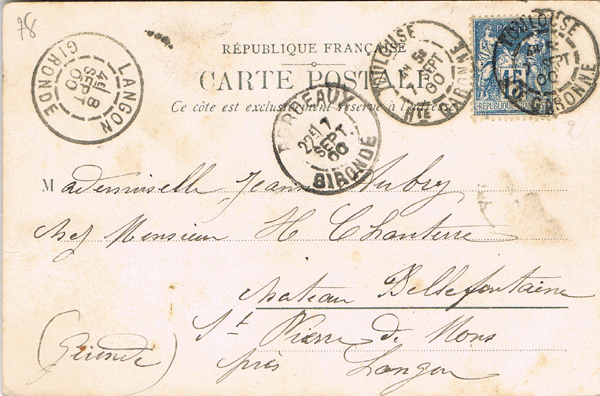 78
RÉPUBLIQUE FRANÇAISE
CARTE POSTALE
Ce côté est exclusivement réservé à l'adresse
LANGON
8
SEPT
00
GIRONDE
TOULOUSE
7 SEPT
00
Hte GARONNE
TOULOUSE
SEPT
00
GARONNE
15
BORDEAUX
7
SEPT
00
GIRONDE
Mademoiselle Jeanne Aubry
chez Monsieur H Chanterre
chateau Bellefontaine
St Pierre de Mons
(Gironde) près Langon